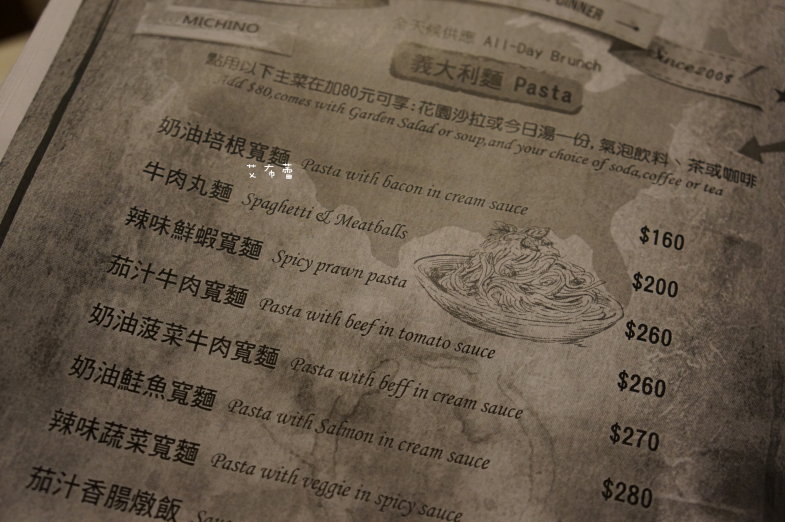 DINNER
MICHINO
全天候供應 All-Day Brunch
Since2008
義大利麵 Pasta
點用以下主菜在加80元可享:花園沙拉或今日湯一份,氣泡飲料、茶或咖啡
Add $80,comes with Garden Salad or soup,and your choice of soda,coffee or tea
奶油培根寬麵 Pasta with bacon in cream sauce $160
艾布蕾
牛肉丸麵 Spaghetti & Meatballs $200
辣味鮮蝦寬麵 Spicy prawn pasta $260
茄汁牛肉寬麵 Pasta with beef in tomato sauce $260
奶油菠菜牛肉寬麵 Pasta with beff in cream sauce $270
奶油鮭魚寬麵 Pasta with Salmon in cream sauce $280
辣味蔬菜寬麵 Pasta with veggie in spicy sauce
茄汁香腸燉飯